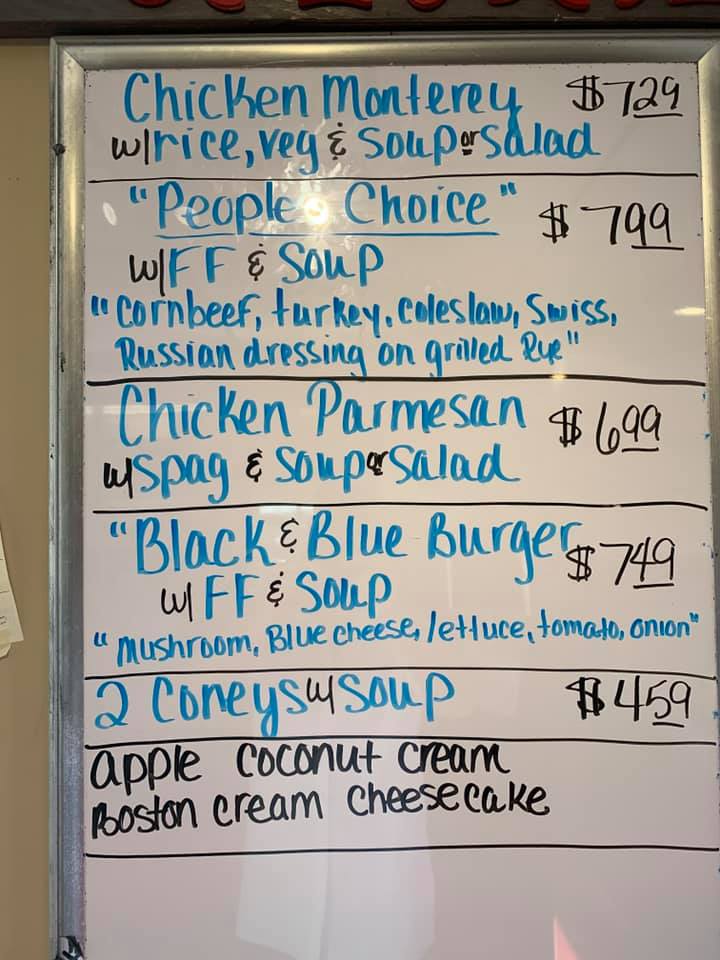 Chicken Monterey $7 29
w/rice, veg & Soup or Salad
"Peoples Choice" $ 7 99
w/FF & Soup
"Cornbeef, turkey, coleslaw, Swiss,
Russian dressing on grilled Rye"
Chicken Parmesan $ 6 99
w/spag & Soup or Salad
"Black & Blue Burger $ 7 49
w/ FF & Soup
"Mushroom, Blue cheese, lettuce, tomato, onion"
2 Coneys w/ Soup $ 4 59
apple coconut cream
Boston cream cheesecake